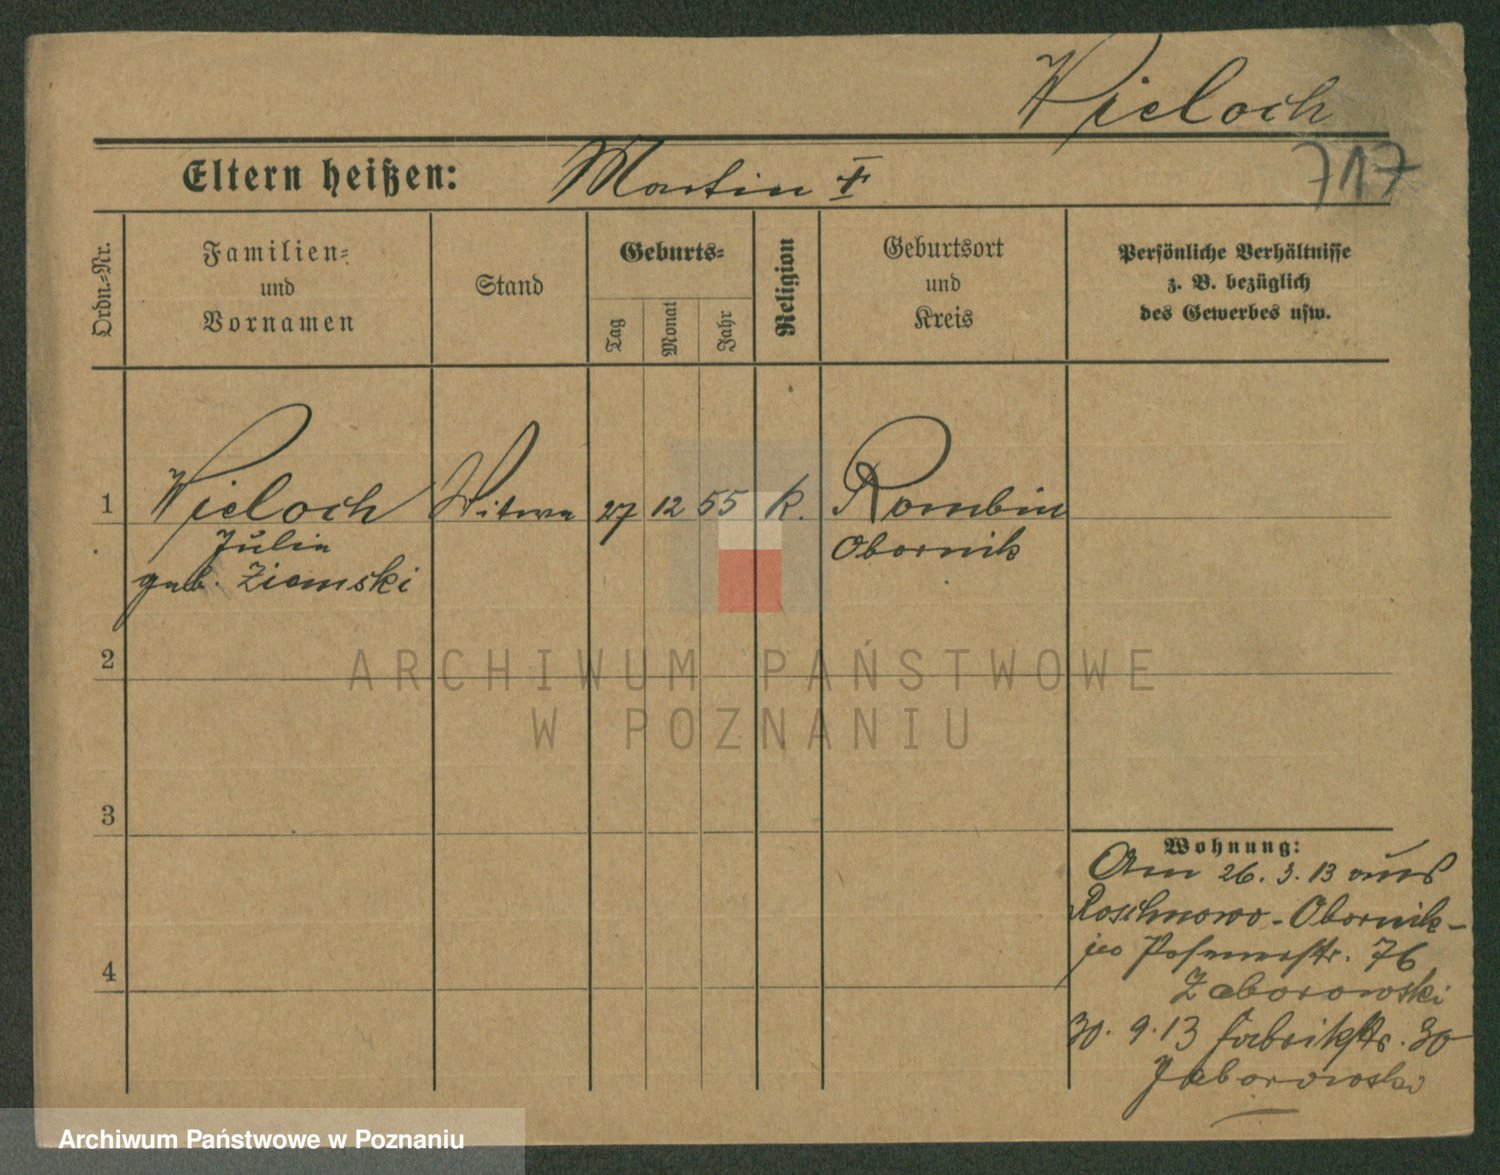 Wieloch
717
Eltern heißen: Martin †
Ordn.=Nr.
Familien=
und
Vornamen
Stand
Geburts=
Tag
Monat
Jahr
Religion
Geburtsort
und
Kreis
Persönliche Verhältnisse
z. B. bezüglich
des Gewerbes usw.
1 Wieloch Witwe 27 12 55 k. Rombin
Julie Obornik
geb. Ziemski
2
ARCHIWUM PAŃSTWOWE
W POZNANIU
3
Wohnung:
Am 26. 3. 13 aus
Roschnowo-Obornik-
Posenerstr. 76
4
Zaborowski
30. 9. 13 Fabrikstr. 30
Zaborowski
Archiwum Państwowe w Poznaniu